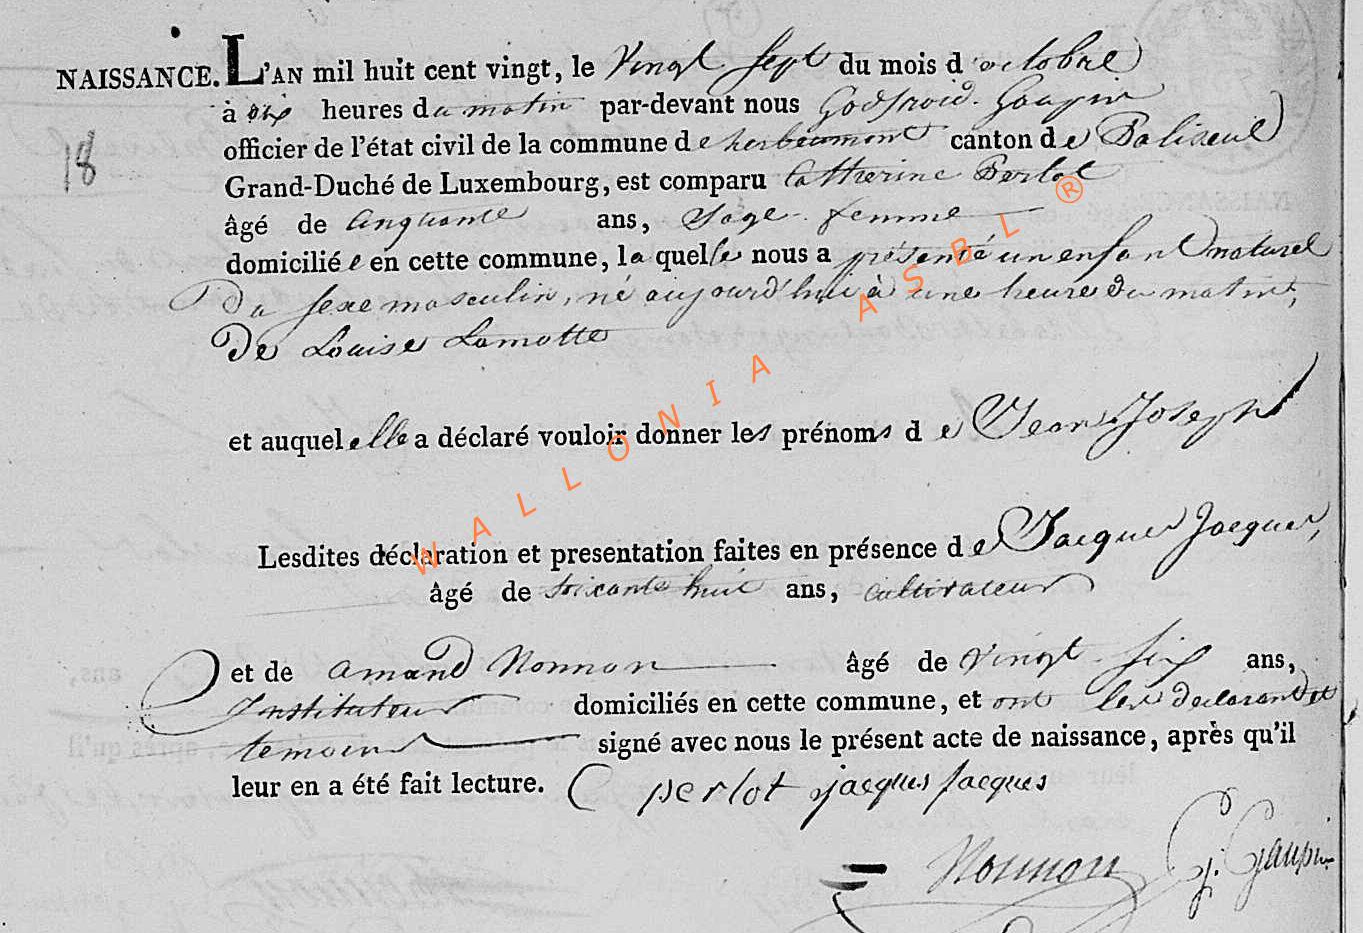 NAISSANCE. L'AN mil huit cent vingt, le Vingt Sept du mois d'octobre
à six heures du matin par-devant nous Godfroid Goupin
18
officier de l'état civil de la commune de herbeumont canton de Paliseul
Grand-Duché de Luxembourg, est comparu Catherine Perlot
âgé de cinquante ans, Sage-femme
domiciliée en cette commune, laquelle nous a présenté un enfant naturel
Du sexe masculin, né aujourd'hui à une heure du matin,
De Louise Lamotte
et auquel elle a déclaré vouloir donner les prénoms de Jean Joseph
Lesdites déclaration et presentation faites en présence de Jacques Jacques,
âgé de soixante huit ans, cultivateur
et de amand Nonnon âgé de vingt-six ans,
Instituteur domiciliés en cette commune, et ont les declarant et
temoins signé avec nous le présent acte de naissance, après qu'il
leur en a été fait lecture. C perlot jacques jacques
Nonnon G. Goupin
WALLONIA ASBL ®